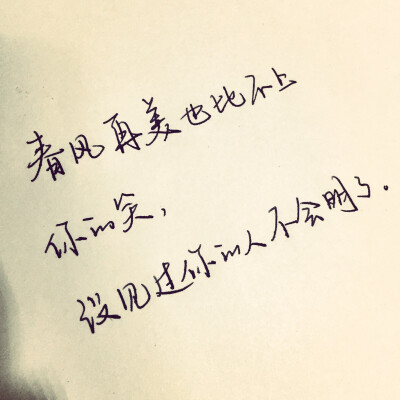 春风再美也比不上
你的笑，
没见过你的人不会明了.